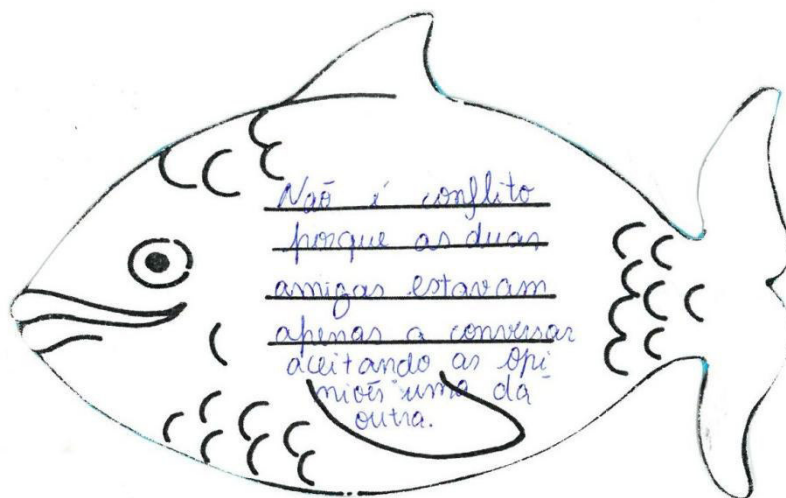 Não é conflito
porque as duas
amigas estavam
apenas a conversar
aceitando as opi
niões uma da
outra.